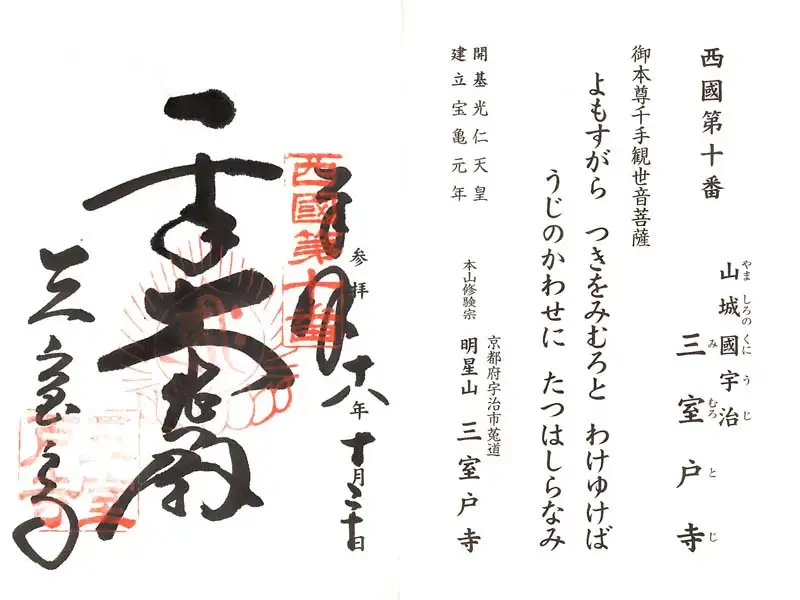 西國第十番
山城國宇治
やましろのくにうじ
三室戸寺
みむろとじ
御本尊千手観世音菩薩
よもすがら つきをみむろと わけゆけば
うじのかわせに たつはしらなみ
開基光仁天皇
建立宝亀元年
京都府宇治市莵道
本山修験宗 明星山 三室戸寺
参拝
十八年十月
西國第十番
三室戸寺
三室戸寺